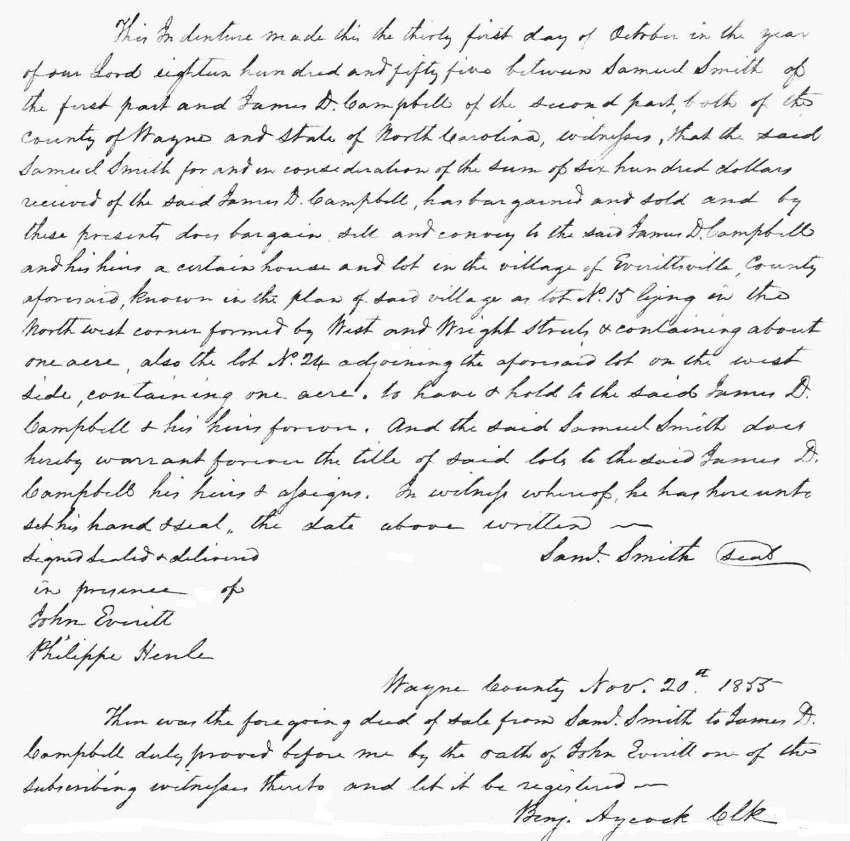 This Indenture made this the thirty first day of October in the year
of our Lord eighteen hundred and fifty five between Samuel Smith of
the first part and James D. Campbell of the second part, both of the
county of Wayne and State of North Carolina, witnesses, That the said
Samuel Smith for and in consideration of the sum of six hundred dollars
received of the said James D. Campbell, has bargained and sold and by
these presents does bargain sell and convey to the said James D. Campbell
and his heirs a certain house and lot in the village of Everittsville, County
aforesaid, known in the plan of said village as lot No. 15 lying in the
North west corner formed by West and Wright Streets, & containing about
one acre, also the lot No. 24 adjoining the aforesaid lot on the west
side, containing one acre. to have & hold to the said James D.
Campbell & his heirs forever. And the said Samuel Smith does
hereby warrant forever the title of said lots to the said James D.
Campbell his heirs & assigns. In witness whereof, he has here unto
set his hand & seal, the date above written
signed sealed & delivered Saml. Smith seal
in presence of
John Everitt
Philippe Henle
Wayne County Nov. 20st. 1855
Then was the foregoing deed of sale from Saml. Smith to James D.
Campbell duly proved before me by the oath of John Everitt one of the
subscribing witnesses thereto and let it be registered
Benj. Aycock Clk